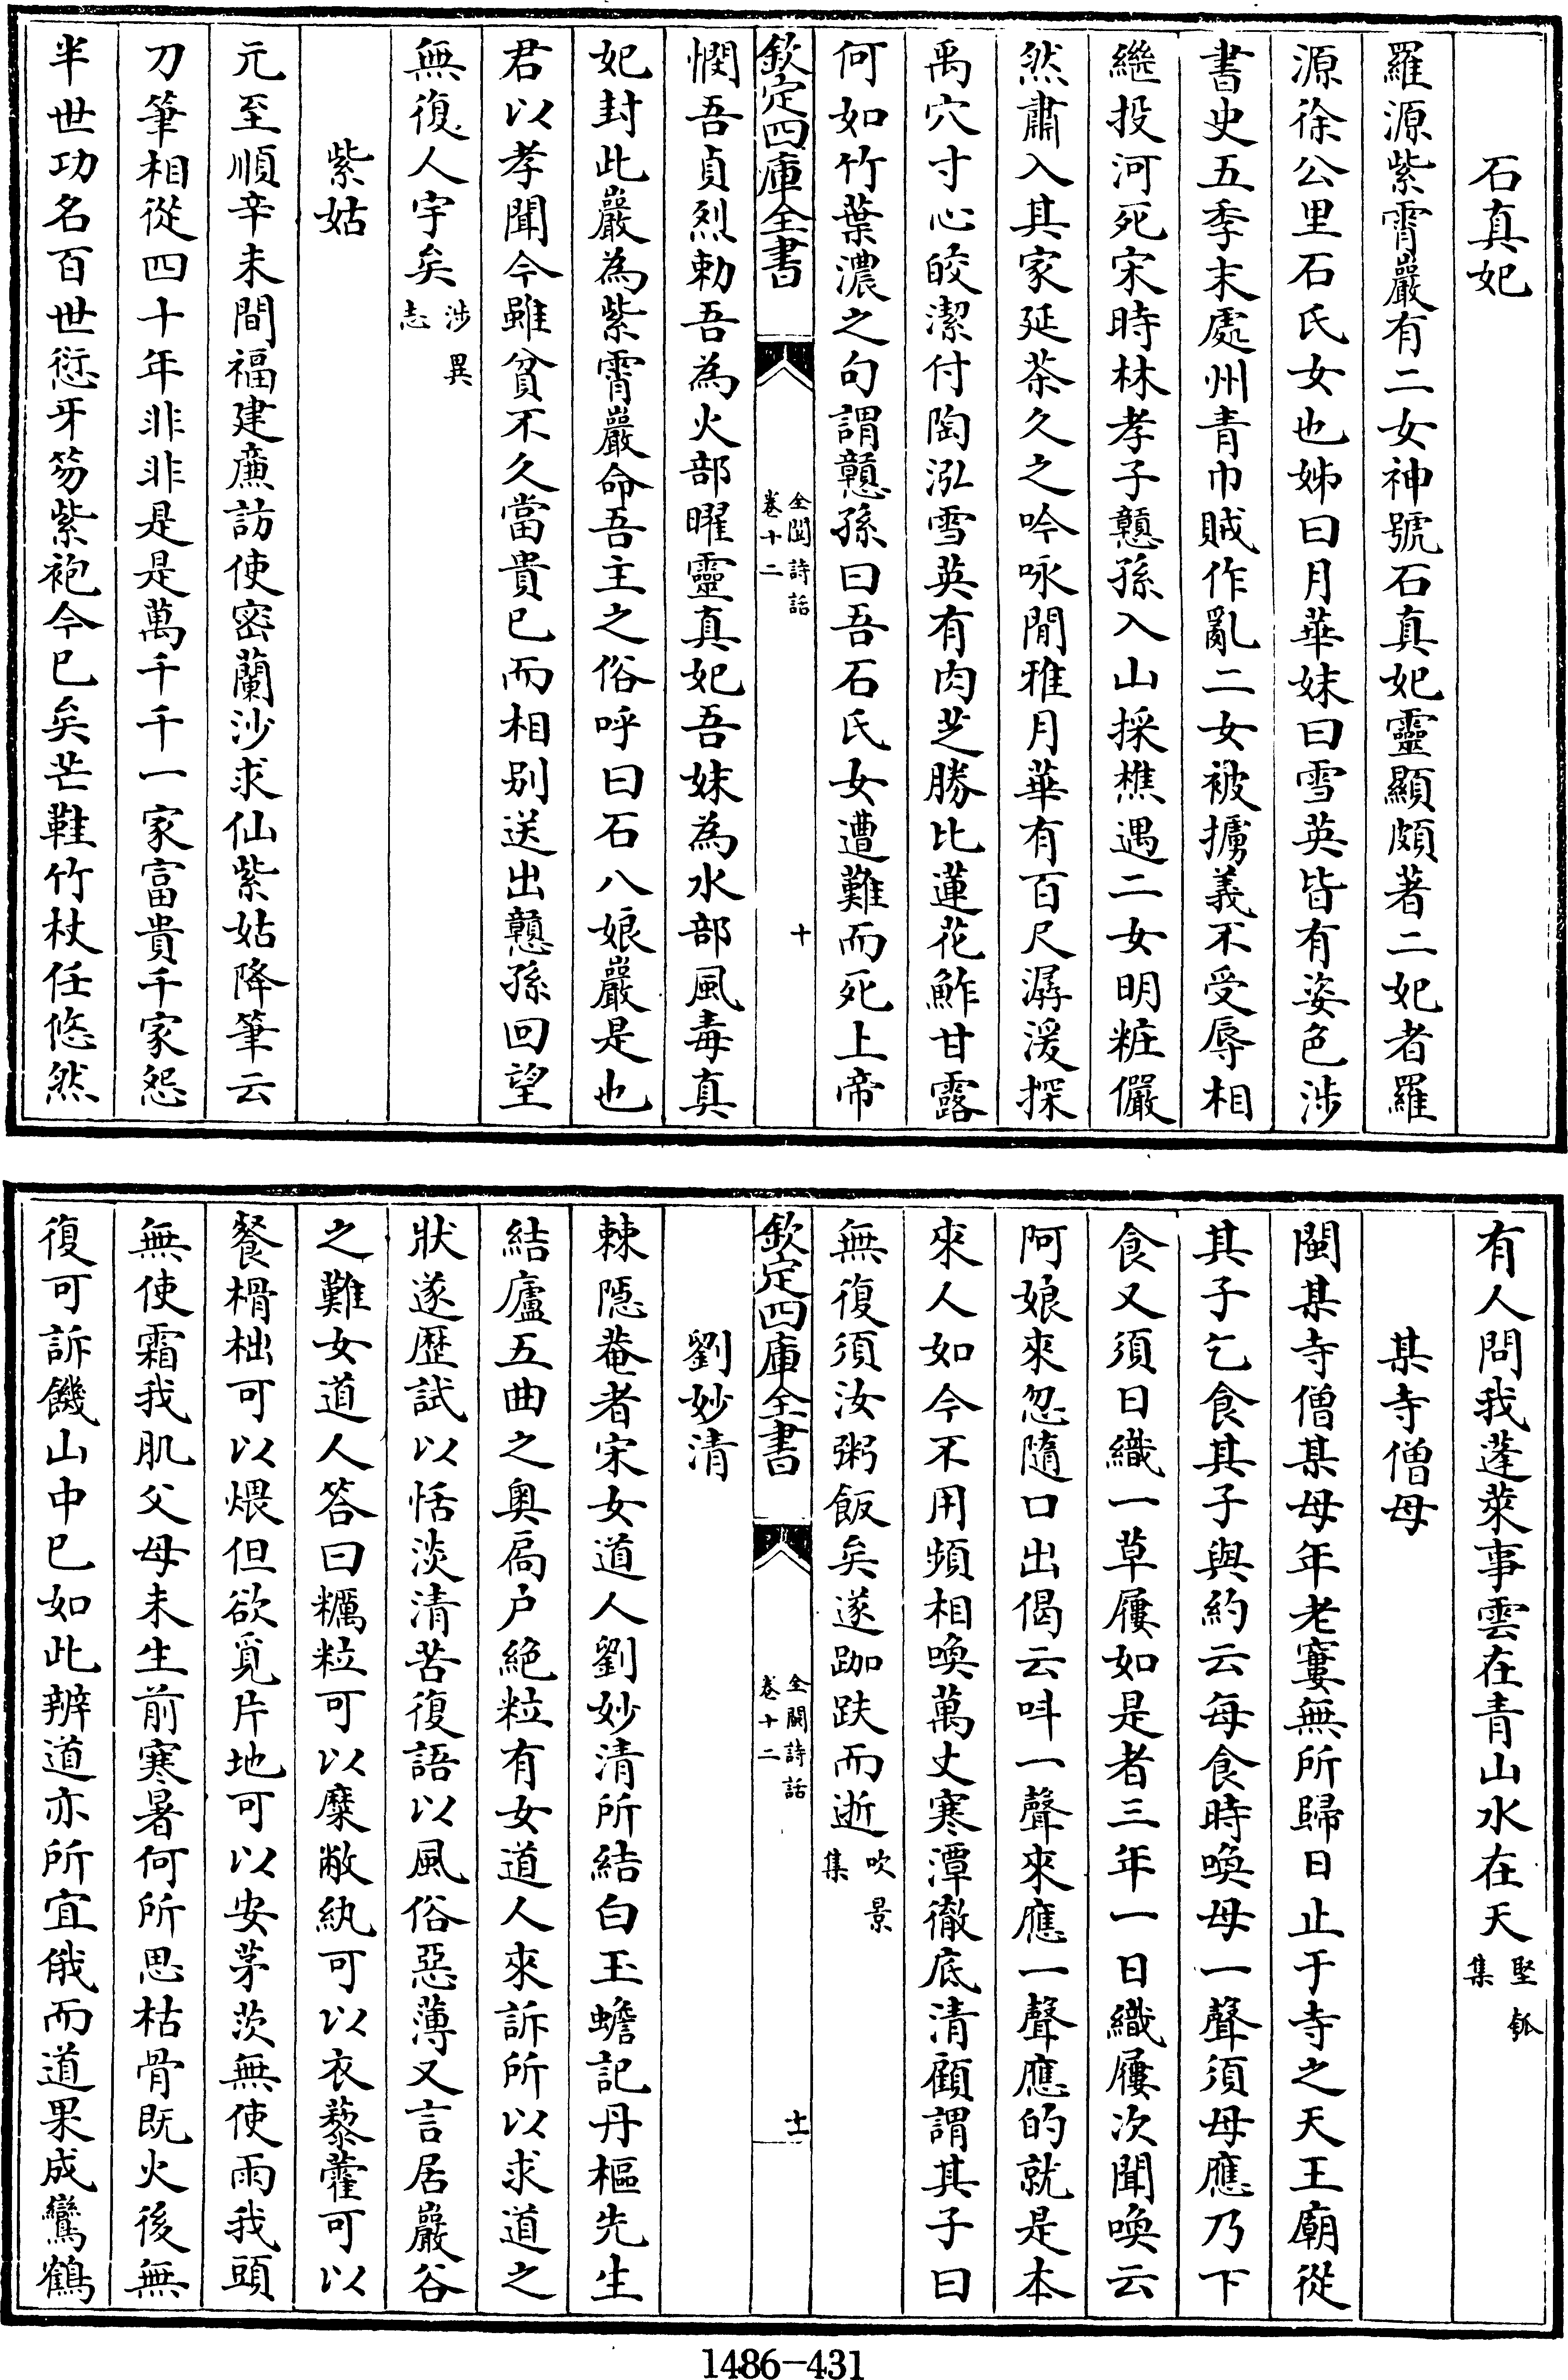 石真妃
羅源紫霄巖有二女神號石真妃靈顯頗著二妃者羅
源徐公里石氏女也姊曰月華妹曰雪英皆有姿色涉
書史五季末處州青巾賊作亂二女被擄義不受辱相
繼投河死宋時林孝子戇孫入山採樵遇二女明粧儼
然肅入其家延茶久之吟咏閒雅月華有百尺潺湲探
禹穴寸心皎潔付陶泓雪英有肉芝勝比蓮花鮓甘露
何如竹葉濃之句謂戇孫曰吾石氏女遭難而死上帝
欽定四庫全書
全閩詩話
卷十二
十
憫吾貞烈勅吾為火部曜靈真妃吾妹為水部風毒真
妃封此巖為紫霄巖命吾主之俗呼曰石八娘巖是也
君以孝聞今雖貧不久當貴已而相别送出戇孫回望
無復人宇矣涉異志
紫姑
元至順辛未間福建廉訪使密蘭沙求仙紫姑降筆云
刀筆相從四十年非非是是萬千千一家富貴千家怨
半世功名百世愆牙笏紫袍今已矣芒鞋竹杖任悠然
有人問我蓬萊事雲在青山水在天堅瓠集
某寺僧母
閩某寺僧某母年老窶無所歸日止于寺之天王廟從
其子乞食其子與約云每食時喚母一聲須母應乃下
食又須日織一草屨如是者三年一日織屨次聞喚云
阿娘來忽隨口出偈云呌一聲來應一聲應的就是本
來人如今不用頻相喚萬丈寒潭徹底清顧謂其子曰
無復須汝粥飯矣遂跏趺而逝吹景集
欽定四庫全書
全閩詩話
卷十二
十一
劉妙清
棘隱菴者宋女道人劉妙清所結白玉蟾記丹樞先生
結廬五曲之奧扃户絶粒有女道人來訴所以求道之
狀遂歴試以恬淡清苦復語以風俗惡薄又言居巖谷
之難女道人答曰糲粒可以糜敝紈可以衣藜藿可以
餐榾柮可以煨但欲覓片地可以安茅茨無使雨我頭
無使霜我肌父母未生前寒暑何所思枯骨既火後無
復可訴饑山中已如此辨道亦所宜俄而道果成鸞鶴
1486-431